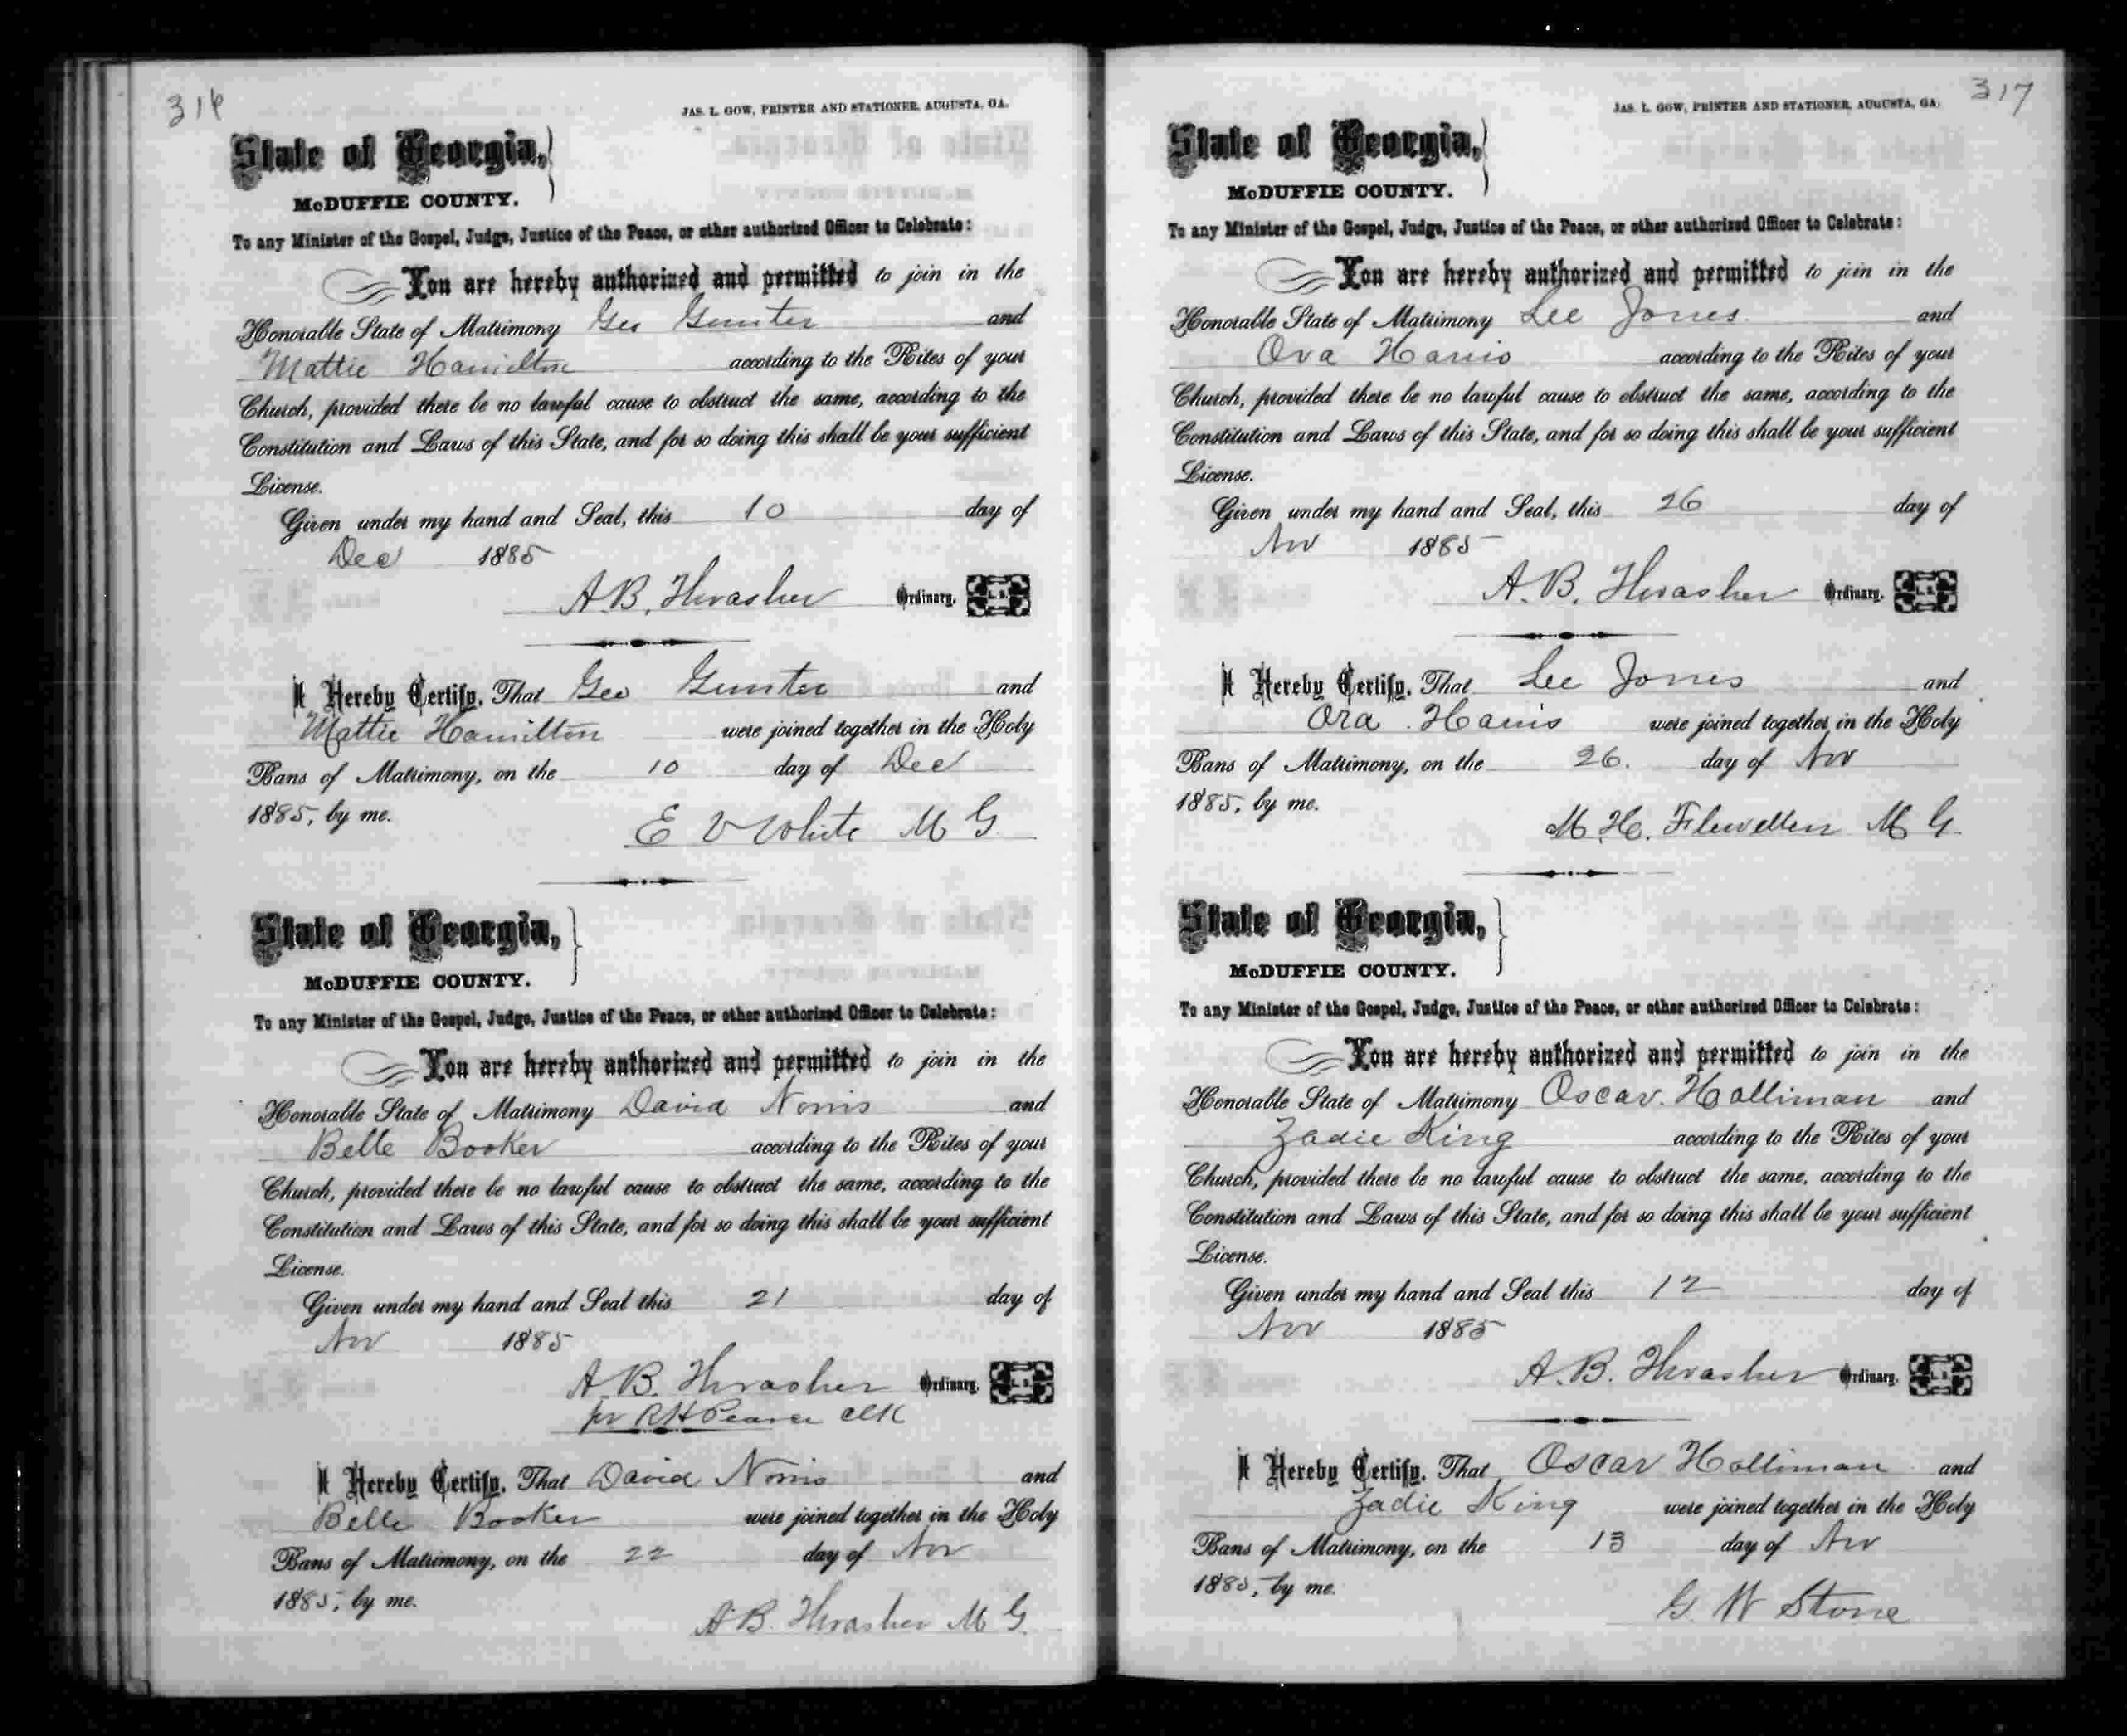 316
JAS. L. GOW, PRINTER AND STATIONER, AUGUSTA, GA.
State of Georgia,
McDUFFIE COUNTY.
To any Minister of the Gospel, Judge, Justice of the Peace, or other authorized Officer to Celebrate:
You are hereby authorized and permitted to join in the
Honorable State of Matrimony Geo Gunter and
Mattie Hamilton according to the Rites of your
Church, provided there be no lawful cause to obstruct the same, according to the
Constitution and Laws of this State, and for so doing this shall be your sufficient
License.
Given under my hand and Seal, this 10 day of
Dec 1885
A. B. Thrasher Ordinary. L. S.
I Hereby Certify, That Geo Gunter and
Mattie Hamilton were joined together in the Holy
Bans of Matrimony, on the 10 day of Dec
1885, by me.
E V White M G
State of Georgia,
McDUFFIE COUNTY.
To any Minister of the Gospel, Judge, Justice of the Peace, or other authorized Officer to Celebrate:
You are hereby authorized and permitted to join in the
Honorable State of Matrimony David Norris and
Belle Booker according to the Rites of your
Church, provided there be no lawful cause to obstruct the same, according to the
Constitution and Laws of this State, and for so doing this shall be your sufficient
License.
Given under my hand and Seal this 21 day of
Nov 1885
A. B. Thrasher Ordinary. L. S.
pr R H Pearce clk
I Hereby Certify, That David Norris and
Belle Booker were joined together in the Holy
Bans of Matrimony, on the 22 day of Nov
1885, by me.
A. B. Thrasher M G.
317
JAS. L. GOW, PRINTER AND STATIONER, AUGUSTA, GA.
State of Georgia,
McDUFFIE COUNTY.
To any Minister of the Gospel, Judge, Justice of the Peace, or other authorized Officer to Celebrate:
You are hereby authorized and permitted to join in the
Honorable State of Matrimony Lee Jones and
Ora Harris according to the Rites of your
Church, provided there be no lawful cause to obstruct the same, according to the
Constitution and Laws of this State, and for so doing this shall be your sufficient
License.
Given under my hand and Seal, this 26 day of
Nov 1885
A. B. Thrasher Ordinary. L. S.
I Hereby Certify, That Lee Jones and
Ora Harris were joined together in the Holy
Bans of Matrimony, on the 26. day of Nov
1885, by me.
M. H. Flewellen M G.
State of Georgia,
McDUFFIE COUNTY.
To any Minister of the Gospel, Judge, Justice of the Peace, or other authorized Officer to Celebrate:
You are hereby authorized and permitted to join in the
Honorable State of Matrimony Oscar. Holliman and
Zadie King according to the Rites of your
Church, provided there be no lawful cause to obstruct the same, according to the
Constitution and Laws of this State, and for so doing this shall be your sufficient
License.
Given under my hand and Seal this 12 day of
Nov 1885
A. B. Thrasher Ordinary. L. S.
I Hereby Certify, That Oscar Holliman and
Zadie King were joined together in the Holy
Bans of Matrimony, on the 13 day of Nov
1885, by me.
G. W Stone